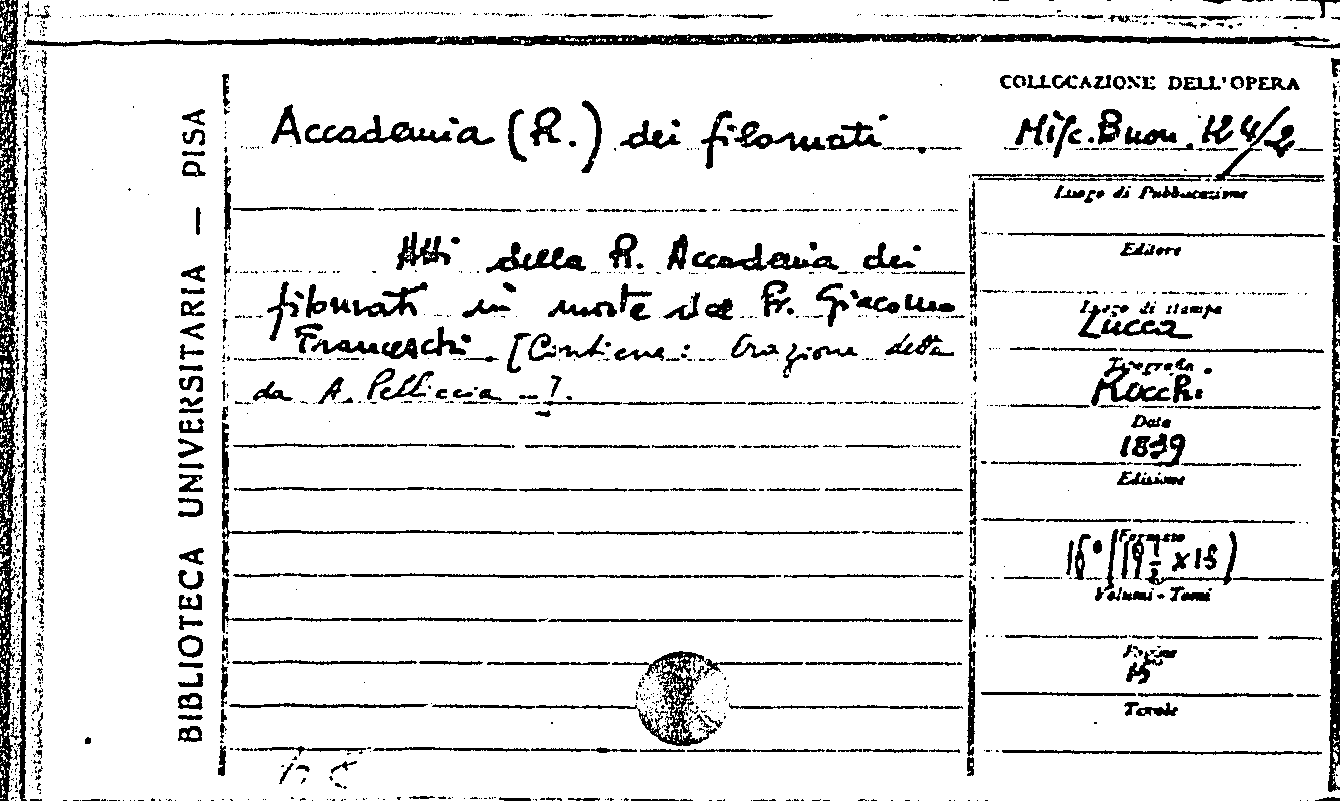 BIBLIOTECA UNIVERSITARIA — PISA
Accademia (R.) dei filomati.
Atti della R. Accademia dei
filomati in morte del Pr. Giacomo
Franceschi. [Contiene: Orazione detta
da A. Pelliccia ...].
COLLOCAZIONE DELL'OPERA
Misc. Buon. 124/2
Luogo di Pubblicazione
Editore
Luogo di stampa
Lucca
Tipografia
Rocchi
Data
1839
Edizione
Formato
Volumi - Tomi
Pagine
15
Tavole